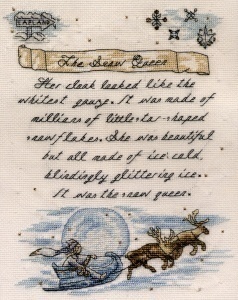 LAPLAND
The Snow Queen
Her cloak looked like the
whitest gauze. It was made of
millions of little star-shaped
snowflakes. She was beautiful
but all made of ice cold,
blindingly glittering ice.
It was the snow queen.